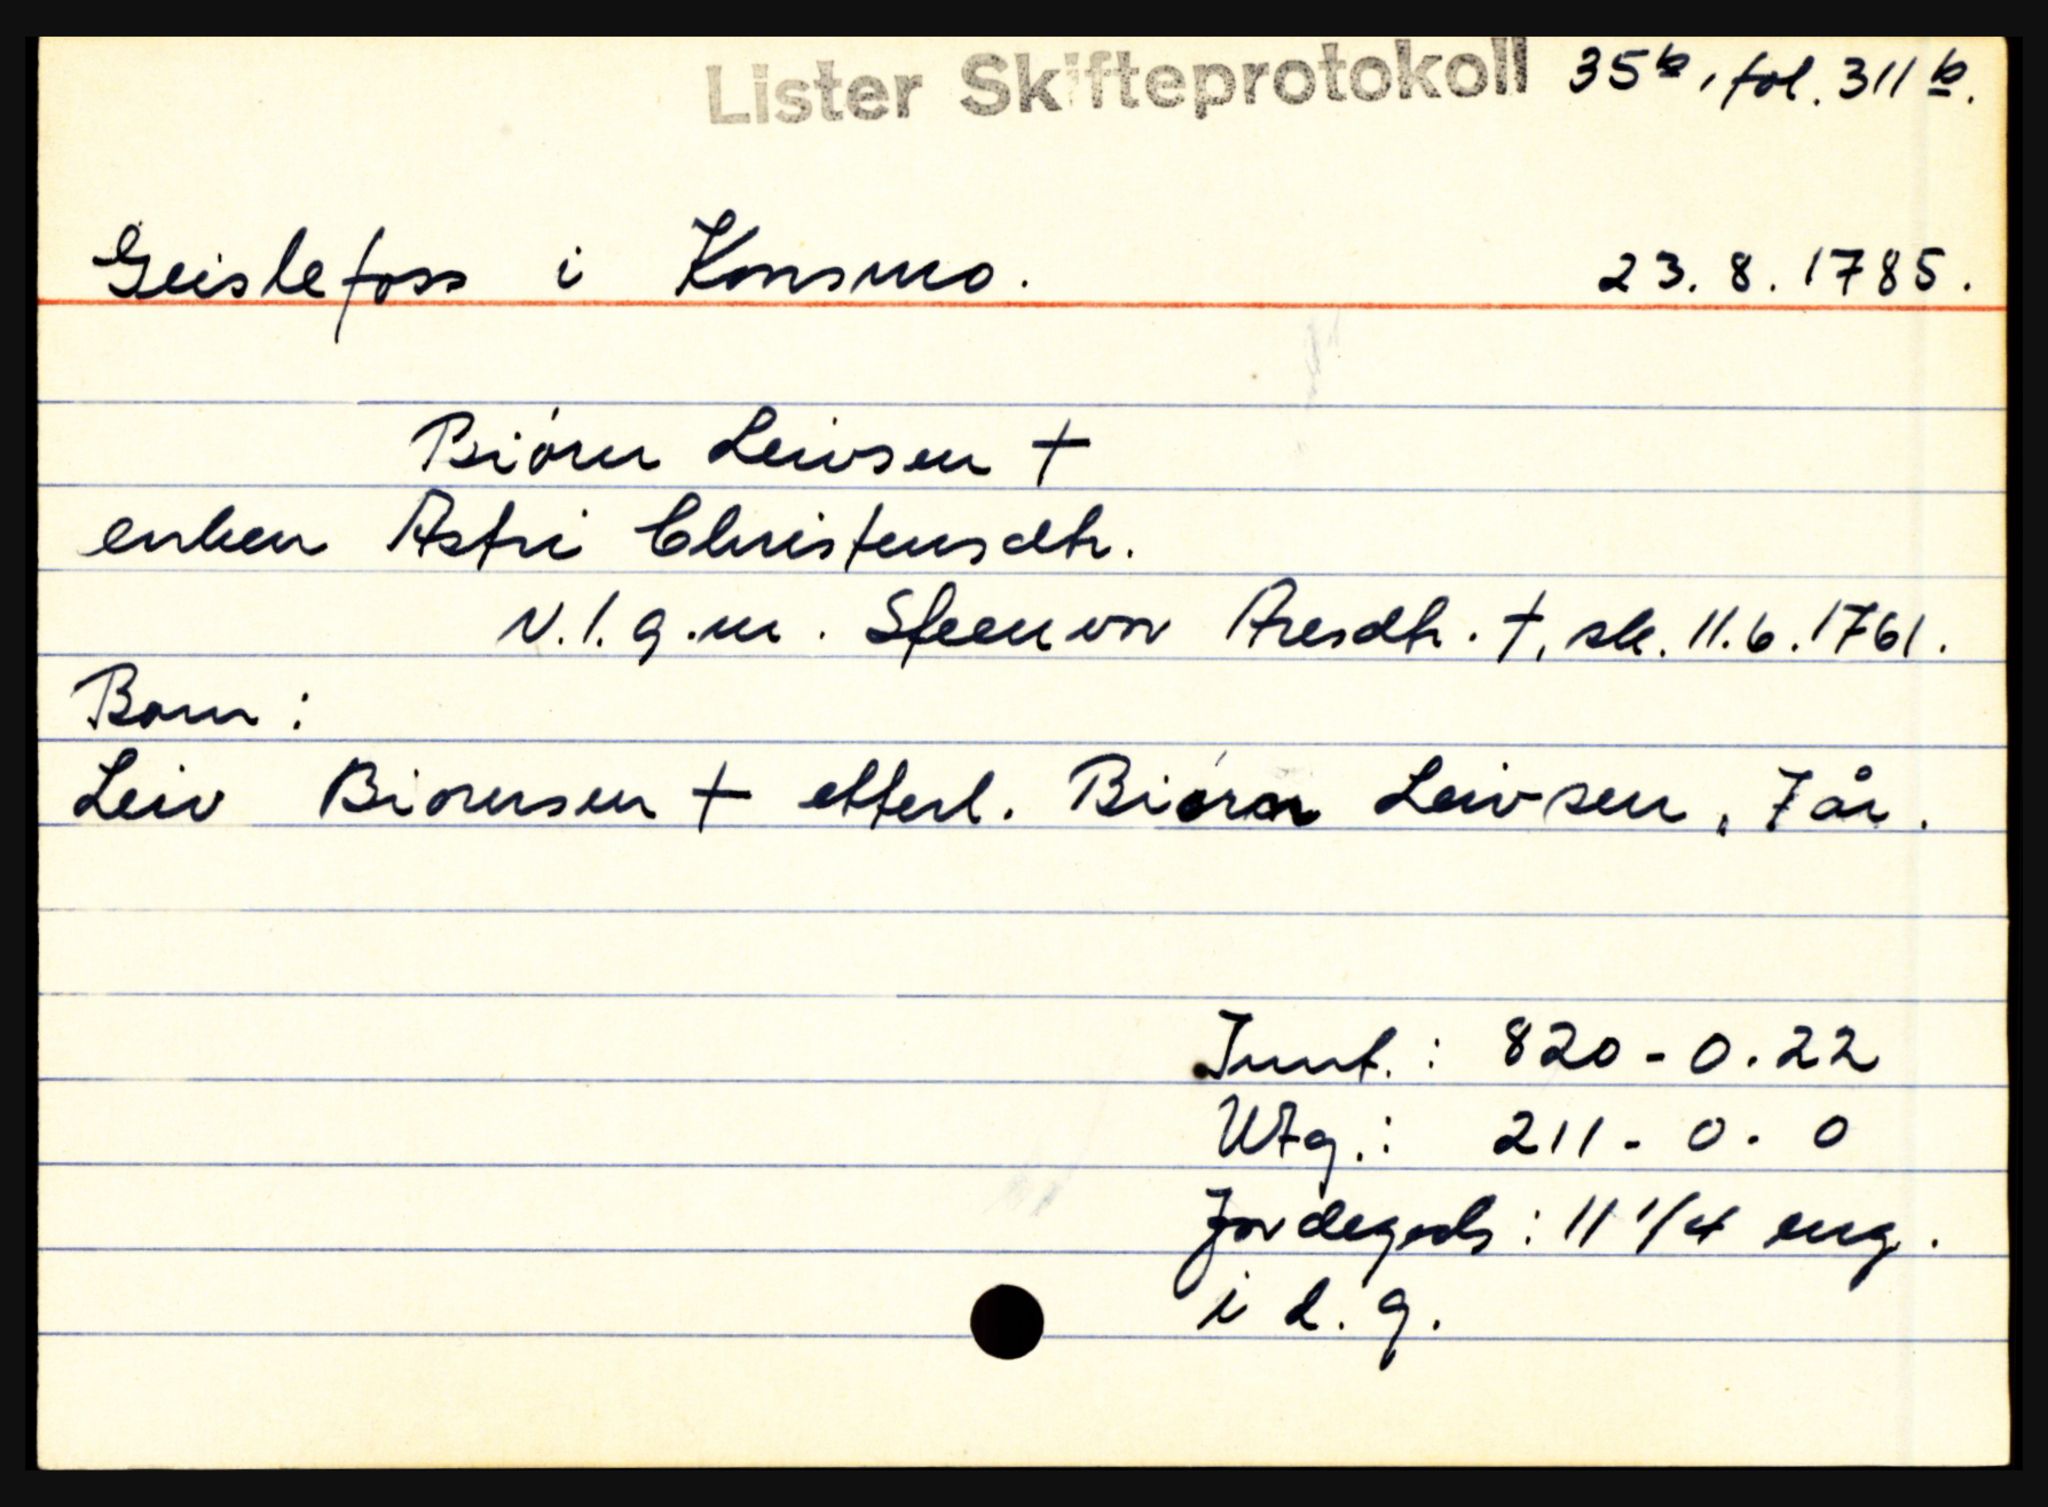 Lister Skifteprotokoll 35b, fol. 311b.
Geislefoss i Konsmo. 23.8.1785.
Biórn Leivsen †
enken Astri Christensdtr.
v. 1. g.m. Steenvor Aresdtr. †, sk. 11.6.1761.
Barn:
Leiv Biornsen † etterl. Biórn Leivsen, 7 år.
Innt.: 820-0-22
Utg.: 211-0-0
Jordegods: 11 1/4 eng.
i d. g.